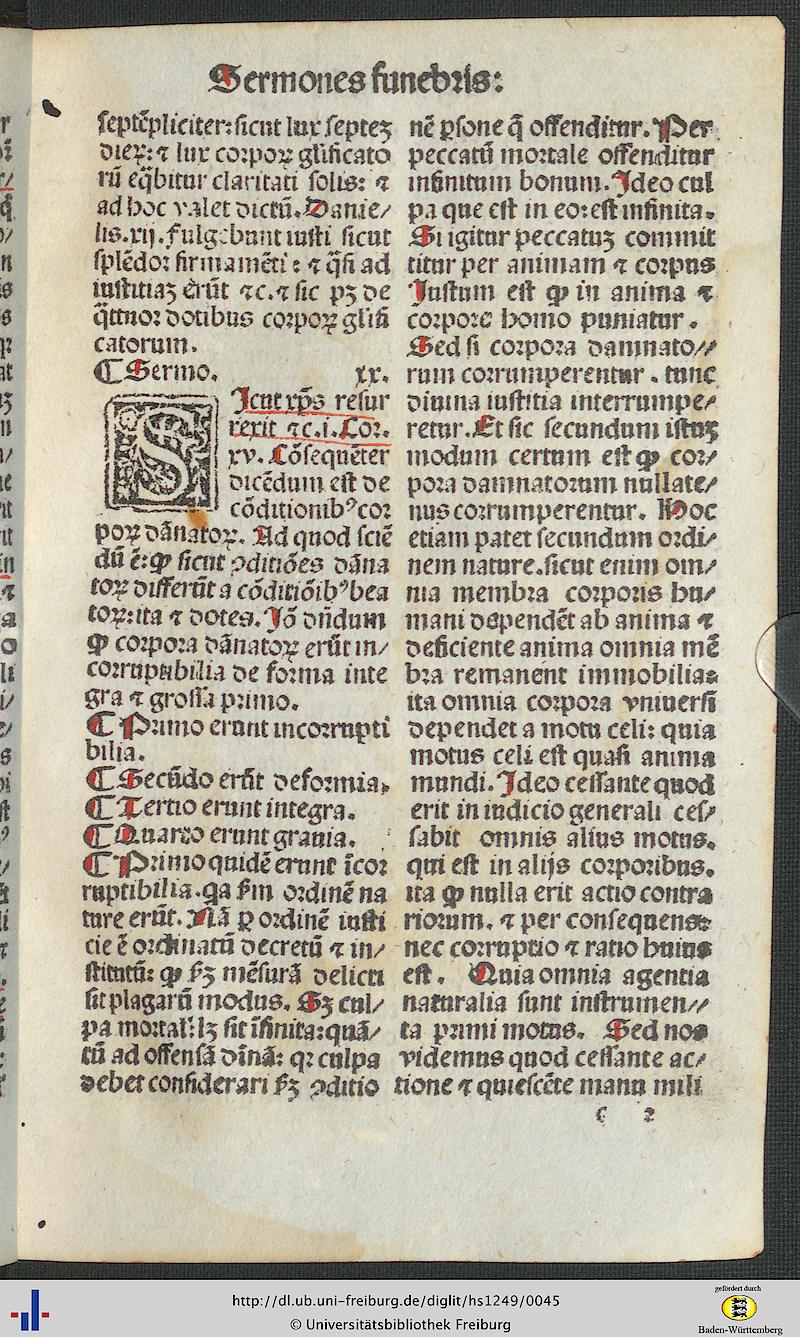 Sermones funebris:
septẽpliciter: sicut lux septeꝫ
dieꝝ: ⁊ lux corpoꝝ glificato
rũ eq̃bitur claritati solis: ⁊
ad hoc valet dictũ. Danie/
lis. xij. fulgebunt iusti sicut
splẽdor firmamẽti: ⁊ q̃si ad
iustitiaꝫ erũt ⁊c. ⁊ sic pꝫ de
q̃ttuor dotibus corpoꝝ glifi
catorum.
¶ Sermo. xx.
SIcut xp̃s resur
rexit ⁊c. i. Cor.
xv. Cõsequẽter
dicẽdum est de
cõditionibꝰ cor
poꝝ dãnatoꝝ. Ad quod sciẽ
dũ ẽ: ꝙ sicut ꝯditiões dãna
toꝝ differũt a cõditiõibꝰ bea
toꝝ: ita ⁊ dotes. Jõ dñdum
ꝙ corpora dãnatoꝝ erũt in/
corruptibilia de forma inte
gra ⁊ grossa primo.
¶ Primo erunt incorrupti
bilia.
¶ Secũdo erũt deformia,
¶ Tertio erunt integra.
¶ Quarto erunt grauia.
¶ Primo quidẽ erunt ĩcor
ruptibilia. qa fm ordinẽ na
ture erũt. Nã ꝑ ordinẽ iusti
cie ẽ ordinatũ decretũ ⁊ in/
stitutũ: ꝙ fꝫ mẽsurã delicti
sit plagarũ modus. Sꝫ cul/
pa mortal': lꝫ sit ĩfinita: quã/
tũ ad offensã diñã: qꝛ culpa
debet considerari fꝫ ꝯditio
nẽ ꝑsone q̃ offenditur. Per
peccatũ mortale offenditur
infinitum bonum. Ideo cul
pa que est in eo: est infinita.
Si igitur peccatuꝫ commit
titur per animam ⁊ corpus
Justum est ꝙ in anima ⁊
corpore homo puniatur.
Sed si corpora damnato//
rum corrumperentur. tunc
diuina iustitia interrumpe/
retur. Et sic secundum istuꝫ
modum certum est ꝙ cor/
pora damnatorum nullate/
nus corrumperentur. Hoc
etiam patet secundum ordi/
nem nature. sicut enim om/
nia membra corporis hu/
mani dependẽt ab anima ⁊
deficiente anima omnia mẽ
bra remanent immobilia:
ita omnia corpora vniuersi
dependet a motu celi: quia
motus celi est quasi anima
mundi. Ideo cessante quod
erit in iudicio generali ces/
sabit omnis alius motus.
qui est in alijs corporibus.
ita ꝙ nulla erit actio contra
riorum. ⁊ per consequens:
nec corruptio ⁊ ratio huius
est. Quia omnia agentia
naturalia sunt instrumen//
ta primi motus. Sed nos
videmus quod cessante ac/
tione ⁊ quiescẽte manu mili
c 2
http://dl.ub.uni-freiburg.de/diglit/hs1249/0045
© Universitätsbibliothek Freiburg
gefördert durch
Baden-Württemberg